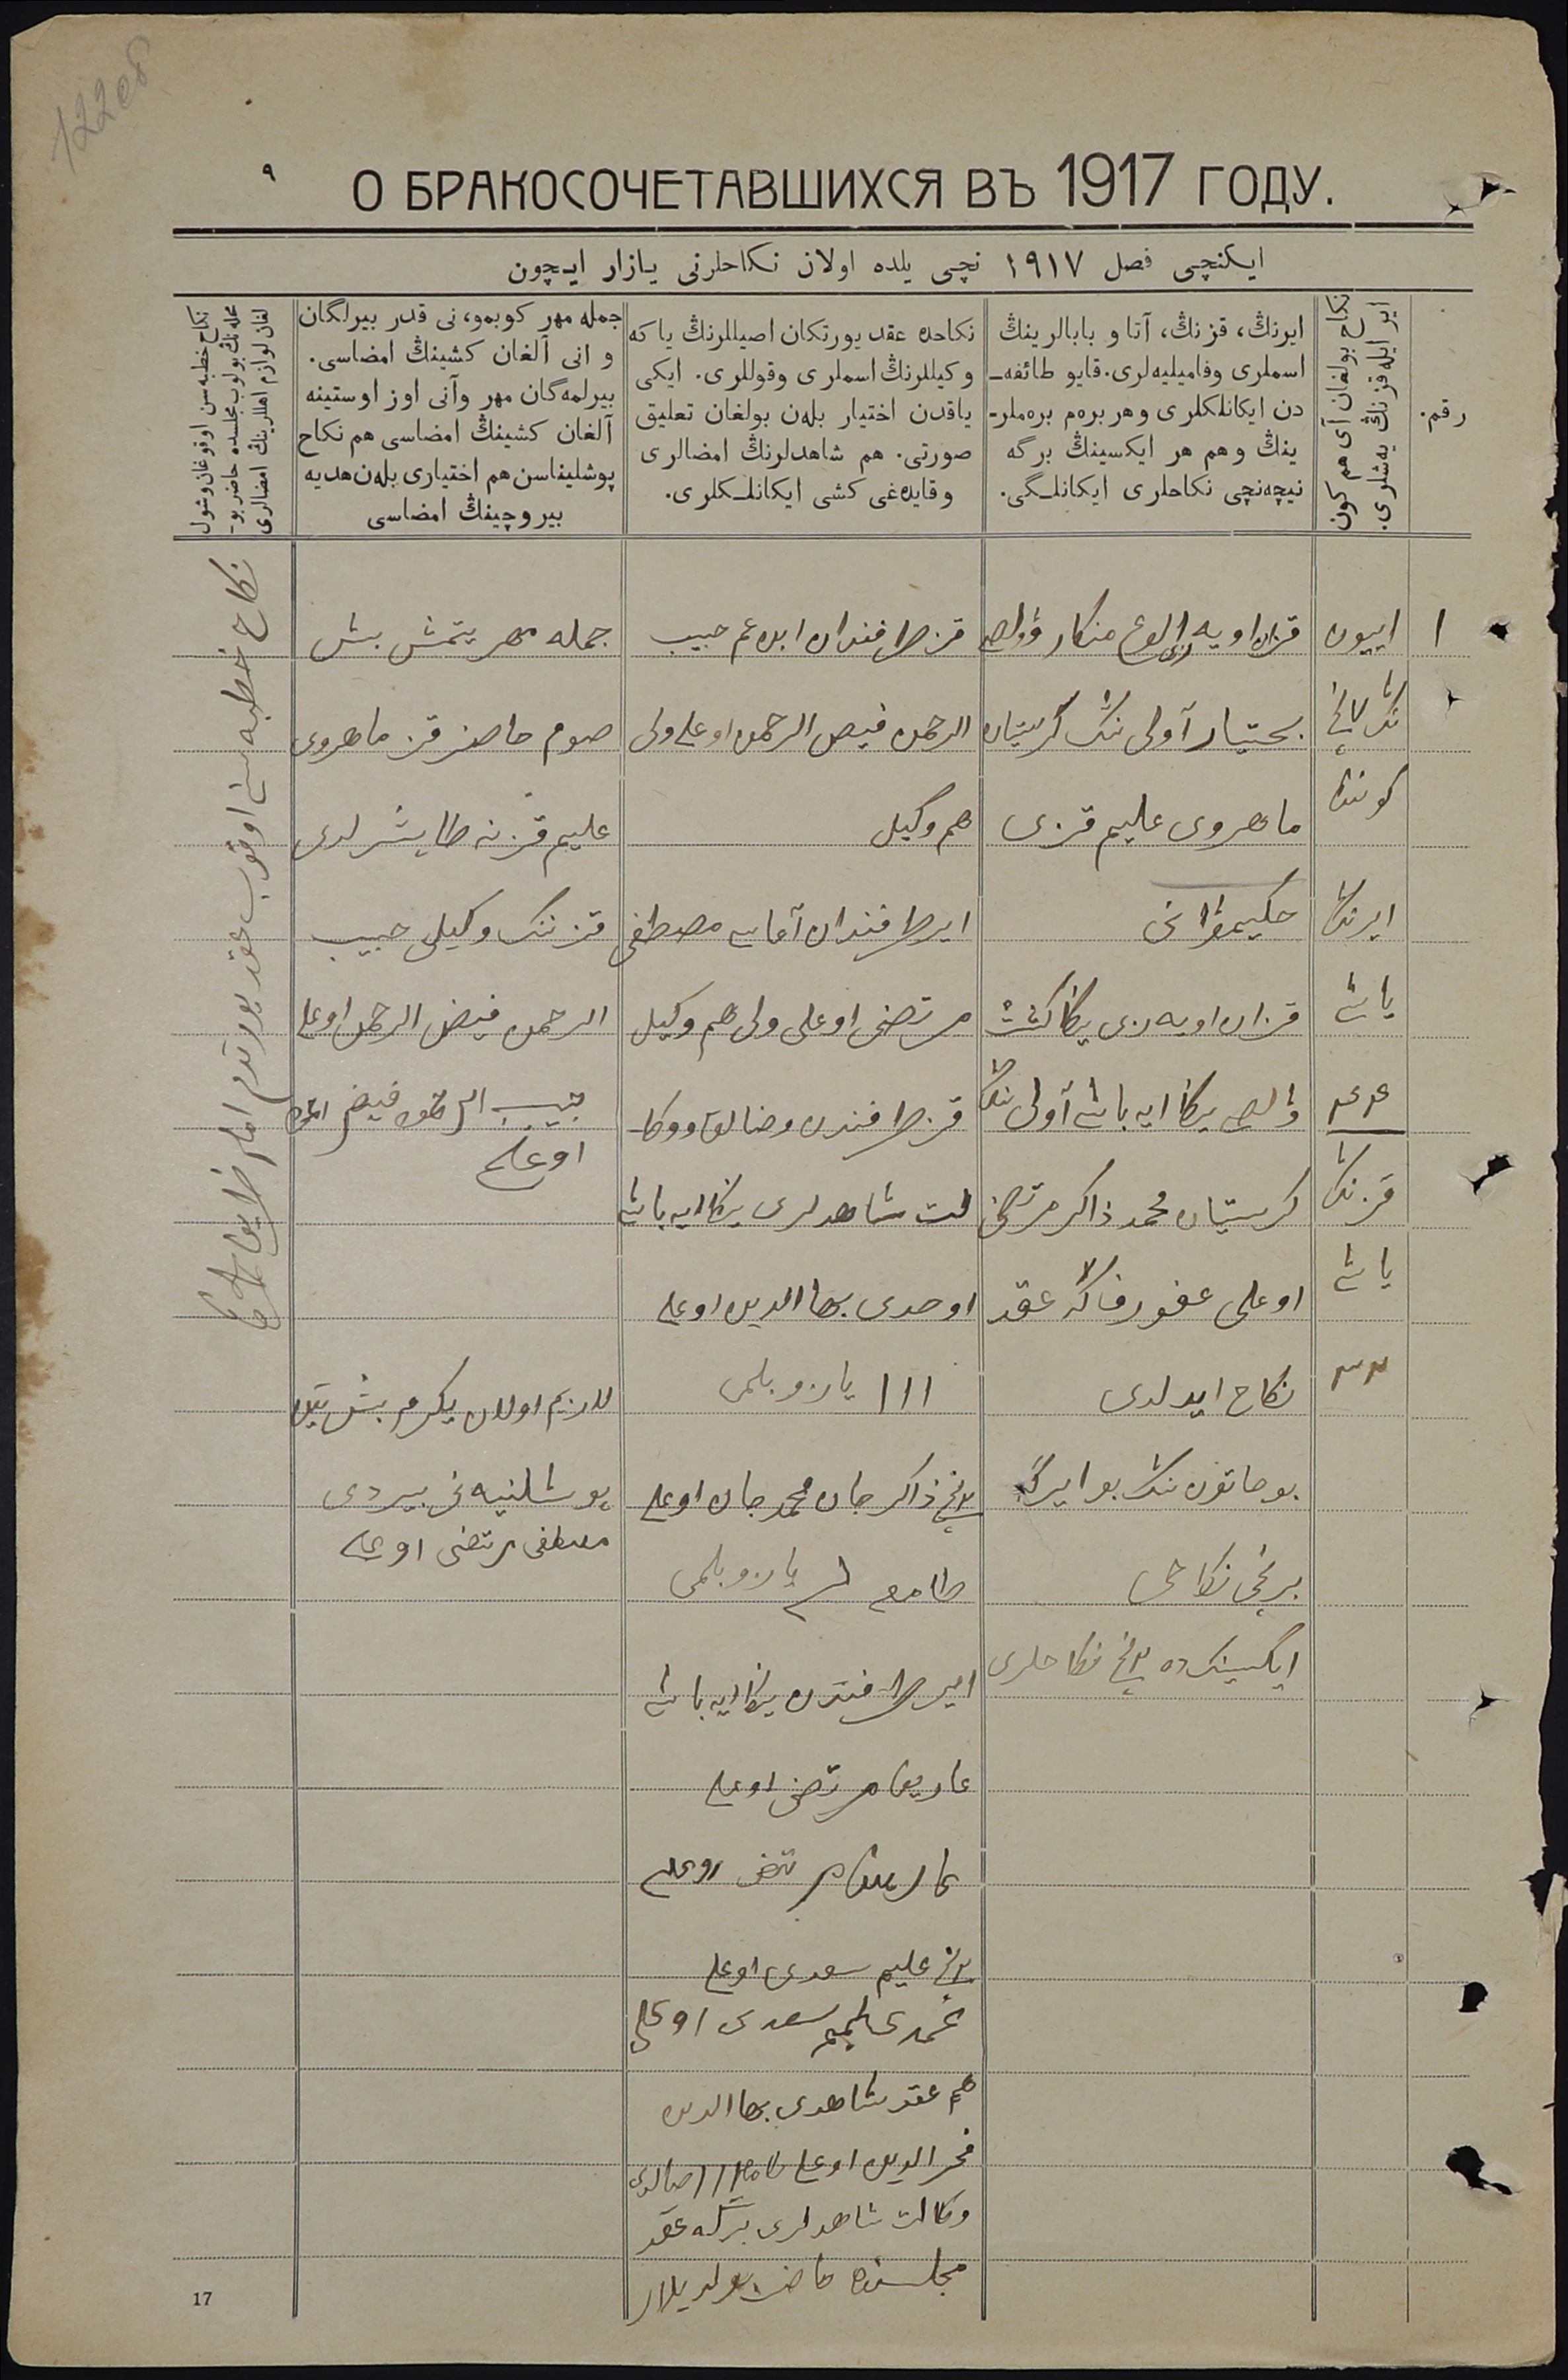 122об
٩
О БРАКОСОЧЕТАВШИХСЯ ВЪ 1917 ГОДУ.
ایکنچی فصل ١٩١٧ نچی یلده اولان نکاحلرنی یازار ایچون
رقم.
نکاح بولغان آی هم کون
ایر ایله قز نڭ یه‌شلری.
ایرنڭ، قزنڭ، آتا و بابالرینڭ
اسملری وفامیلیه‌لری. قایو طائفه‌ـ
دن ایکانلکلری و هر برەم بره‌ملرـ
ینڭ و هم هر ایکسینڭ برگه
نیچه‌نچی نکاحلری ایکانلـگی.
نکاحده عقد یورتکان اصیللرنڭ یا که
وکیللرنڭ اسملری وقوللری. ایکی
یاقدن اختیار بله‌ن بولغان تعلیق
صورتی. هم شاهدلرنڭ امضالری
وقایده‌غی کشی ایکانلـکلری.
جمله مهر کوبمو، نی قدر بیرلگان
و انی آلغان کشینڭ امضاسی.
بیرلمه‌گان مهر وآنی اوز اوستینه
آلغان کشینڭ امضاسی هم نکاح
پوشلیناسن هم اختیاری بله‌ن هدیه
بیروچینڭ امضاسی
نکاح خطبه‌سن اوقوغان وشول
محله‌نڭ بولوب مجلسده حاضر بوـ
لغان لوازم اهللرینڭ امضالری
١
اییون
نڭ ٧ نچی
کوننده
ایرنڭ
یاشی
٢٤
قزنڭ
یاشی
٢٣
قزان اویه‌زی الوغ منکار ؤولصی
بختیار آولی ننڭ کرستیان
ماهروی علیم قزی
حکیمف‌انی
قزان اویه‌زی یڭا کشت
ؤالصی یڭا ایه باشی آولی ننڭ
کرستیان محمد ذاکر مرتضی
اوعلی غفورفا‌گه عقد
نکاح ایدلدی
بو خاتون ننڭ بو ایرگه
برنچی نکاحی
ایکسینک ده ٢نچی نکاحلری
قز طرفندان ابن عم حبیب
الرحمن فیض الرحمن اوعلی ولی
هم وکیل
ایر طرفندان آغاسی مصطفی
مرتضی اوعلی ولی هم وکیل
قز طرفندن رضالق ووکا
لت شاهدلری یڭا ایه باشی
اوحدی بهاالدین اوعلی
ااا یازو بلمی
٢نچی ذاکر جان محمد جان اوعلی
طامغه سی یازو بلمی
ایر طرفندن یڭا ایه باشی
عاریف مرتضی اوعلی
مرتضی اوعلی
٢نچی علیم سعدی اوعلی
محمد علیم سعدی اوعلی
هم عقد شاهدی بهاالدین
فخرالدین اوعلی ااا رضالق
وکالت شاهدلری برگه عقد
مجلسنده حاضر بولدیلار
جمله مهر یتمش بش
صوم حاضر قز ماهروی
علیم قزنه طابشرلدی
قز ننڭ وکیلی حبیب
الرحمن فیض الرحمن اوعلی
حبیب الرحمن فیض الرحمن
اوعلی
لازیم اولان یکرمی بش تین
پوشلنیه نی بیردی
مصطفی مرتضی اوعلی
نکاح خطبه سنی اوقوب عقد یورتدم امام
17